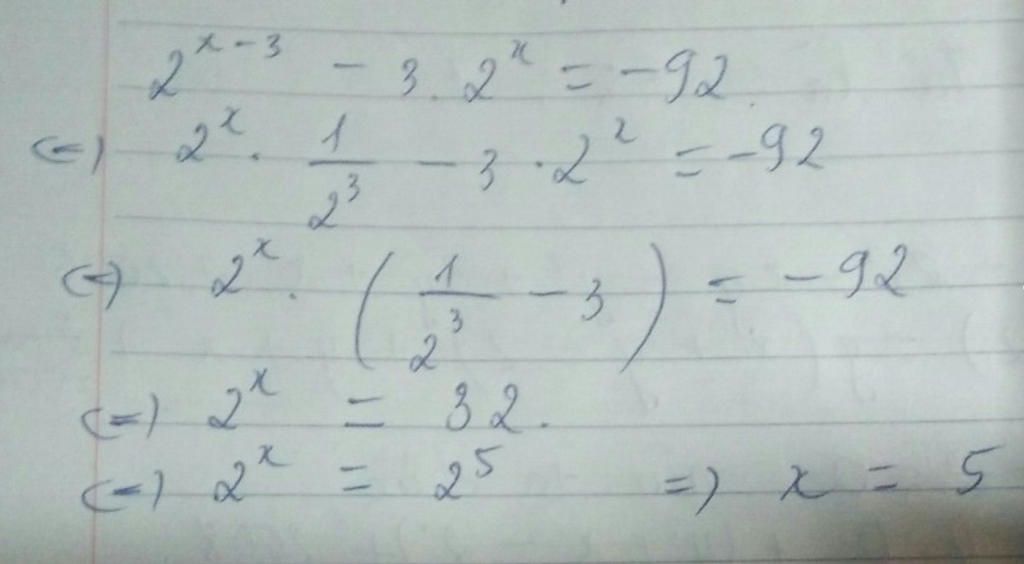 2^{x-3} - 3.2^x = -92
(=) 2^x . \frac{1}{2^3} - 3 . 2^x = -92
(=) 2^x . ( \frac{1}{2^3} - 3 ) = -92
(=) 2^x = 32.
(=) 2^x = 2^5 =) x = 5